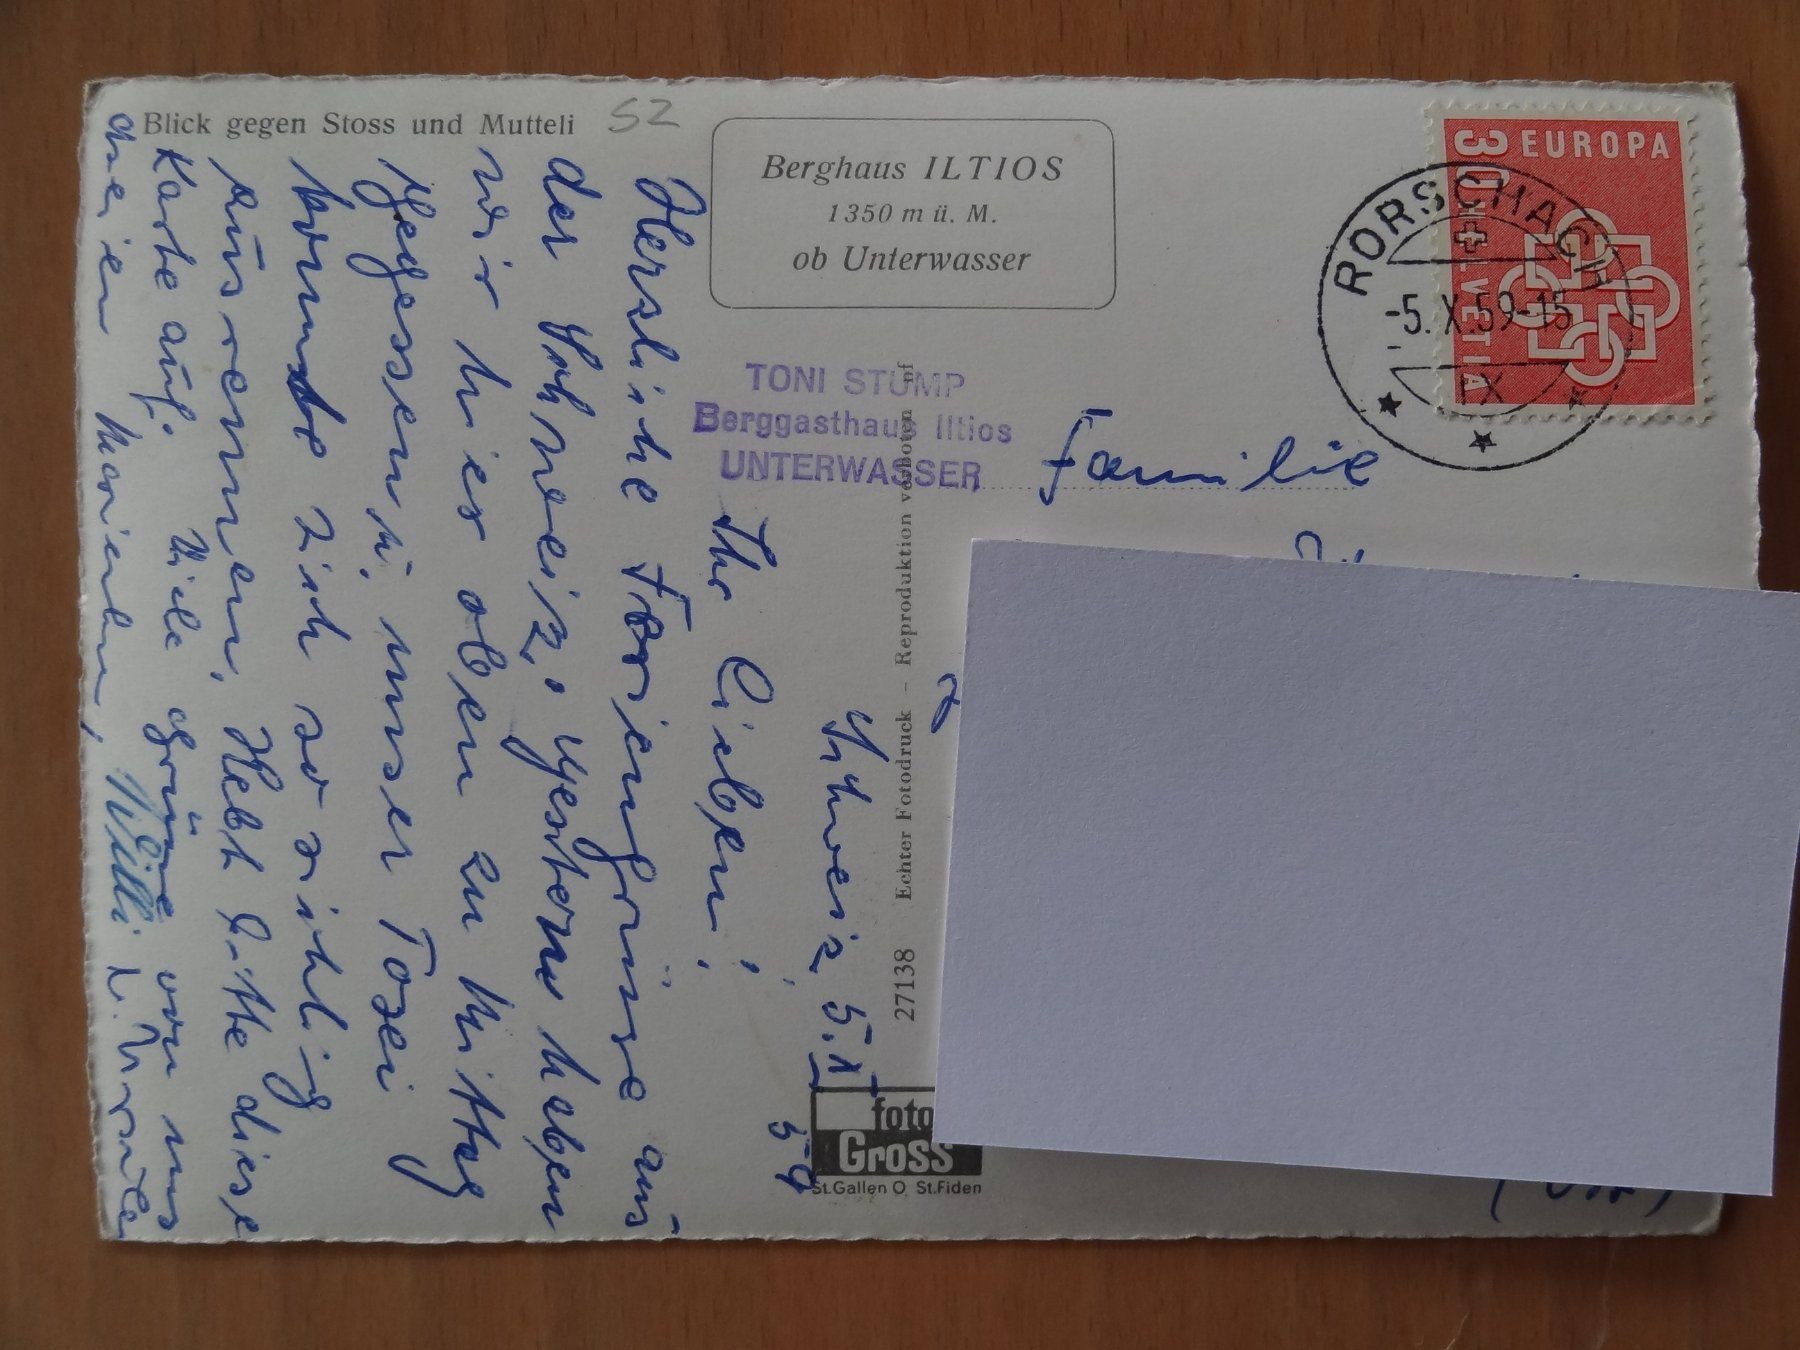 Blick gegen Stoss und Mutteli
SZ
Berghaus ILTIOS
1350 m ü. M.
ob Unterwasser
30 EUROPA
HELVETIA
RORSCHACH
-5.X.59-15
TONI STUMP
Berggasthaus Iltios
UNTERWASSER
Familie
27138 Echter Fotodruck – Reproduktion verboten
foto
GROSS
St.Gallen O St.Fiden
Schweiz, 5.X.
59
Ihr Lieben!
Herzliche Feriengrüsse aus
der Schweiz. Gestern haben
wir hier oben zu Mittag
gegessen u. unser
konnte sich so richtig
ausrennen. Hebt bitte diese
Karte auf. Viele Grüsse von uns
dreien Marienkn, Willi u. Ursula